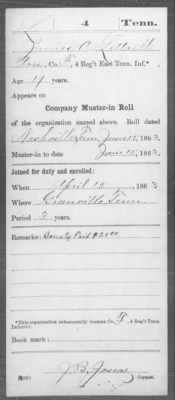 4 Tenn.
James A
Co. , 4 Reg't East Tenn. Inf.*
Age 19 years.
Appears on
Company Muster-in Roll
of the organization named above. Roll dated
Nashville Tenn, June 15, 1863
Muster-in to date June 15, 1863
Joined for duty and enrolled:
When April 13, 1863
Where Greenville, Tenn
Period 3 years.
Remarks: Bounty Paid
*This organization subsequently became Co. , 4 Reg't Tenn.
Infantry.
Book mark:
J B
Copyist.